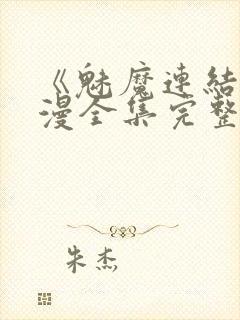 《魅魔連結
漫全集完整
朱杰